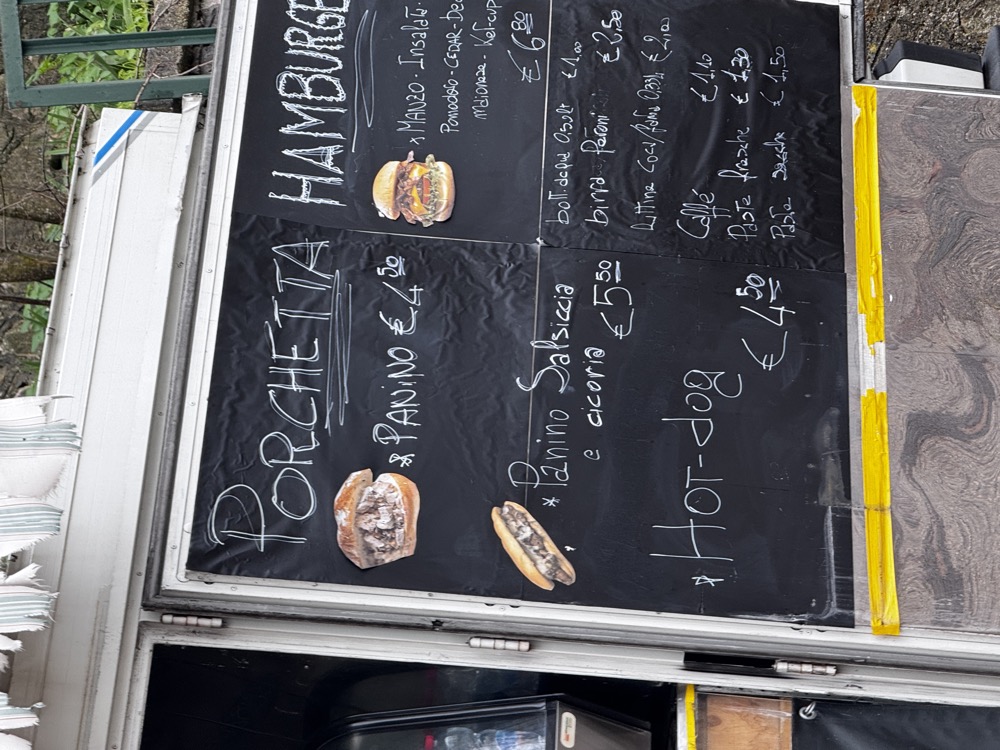 PORCHETTA
* PANINO € 4,50
* Panino Salsiccia
e cicoria € 5,50
* HOT-dog
€ 4,50
HAMBURGE
* MANZO - Insalata -
Pomodoro - CEDAR -
maionese -
€ 6,80
bott. acqua 0,50lt €1,00
birra Peroni € 2,50
lattina Coca/fanta 0,33l € 2,00
Caffé € 1,10
Paste fresche € 1,30
Paste secche € 1,50